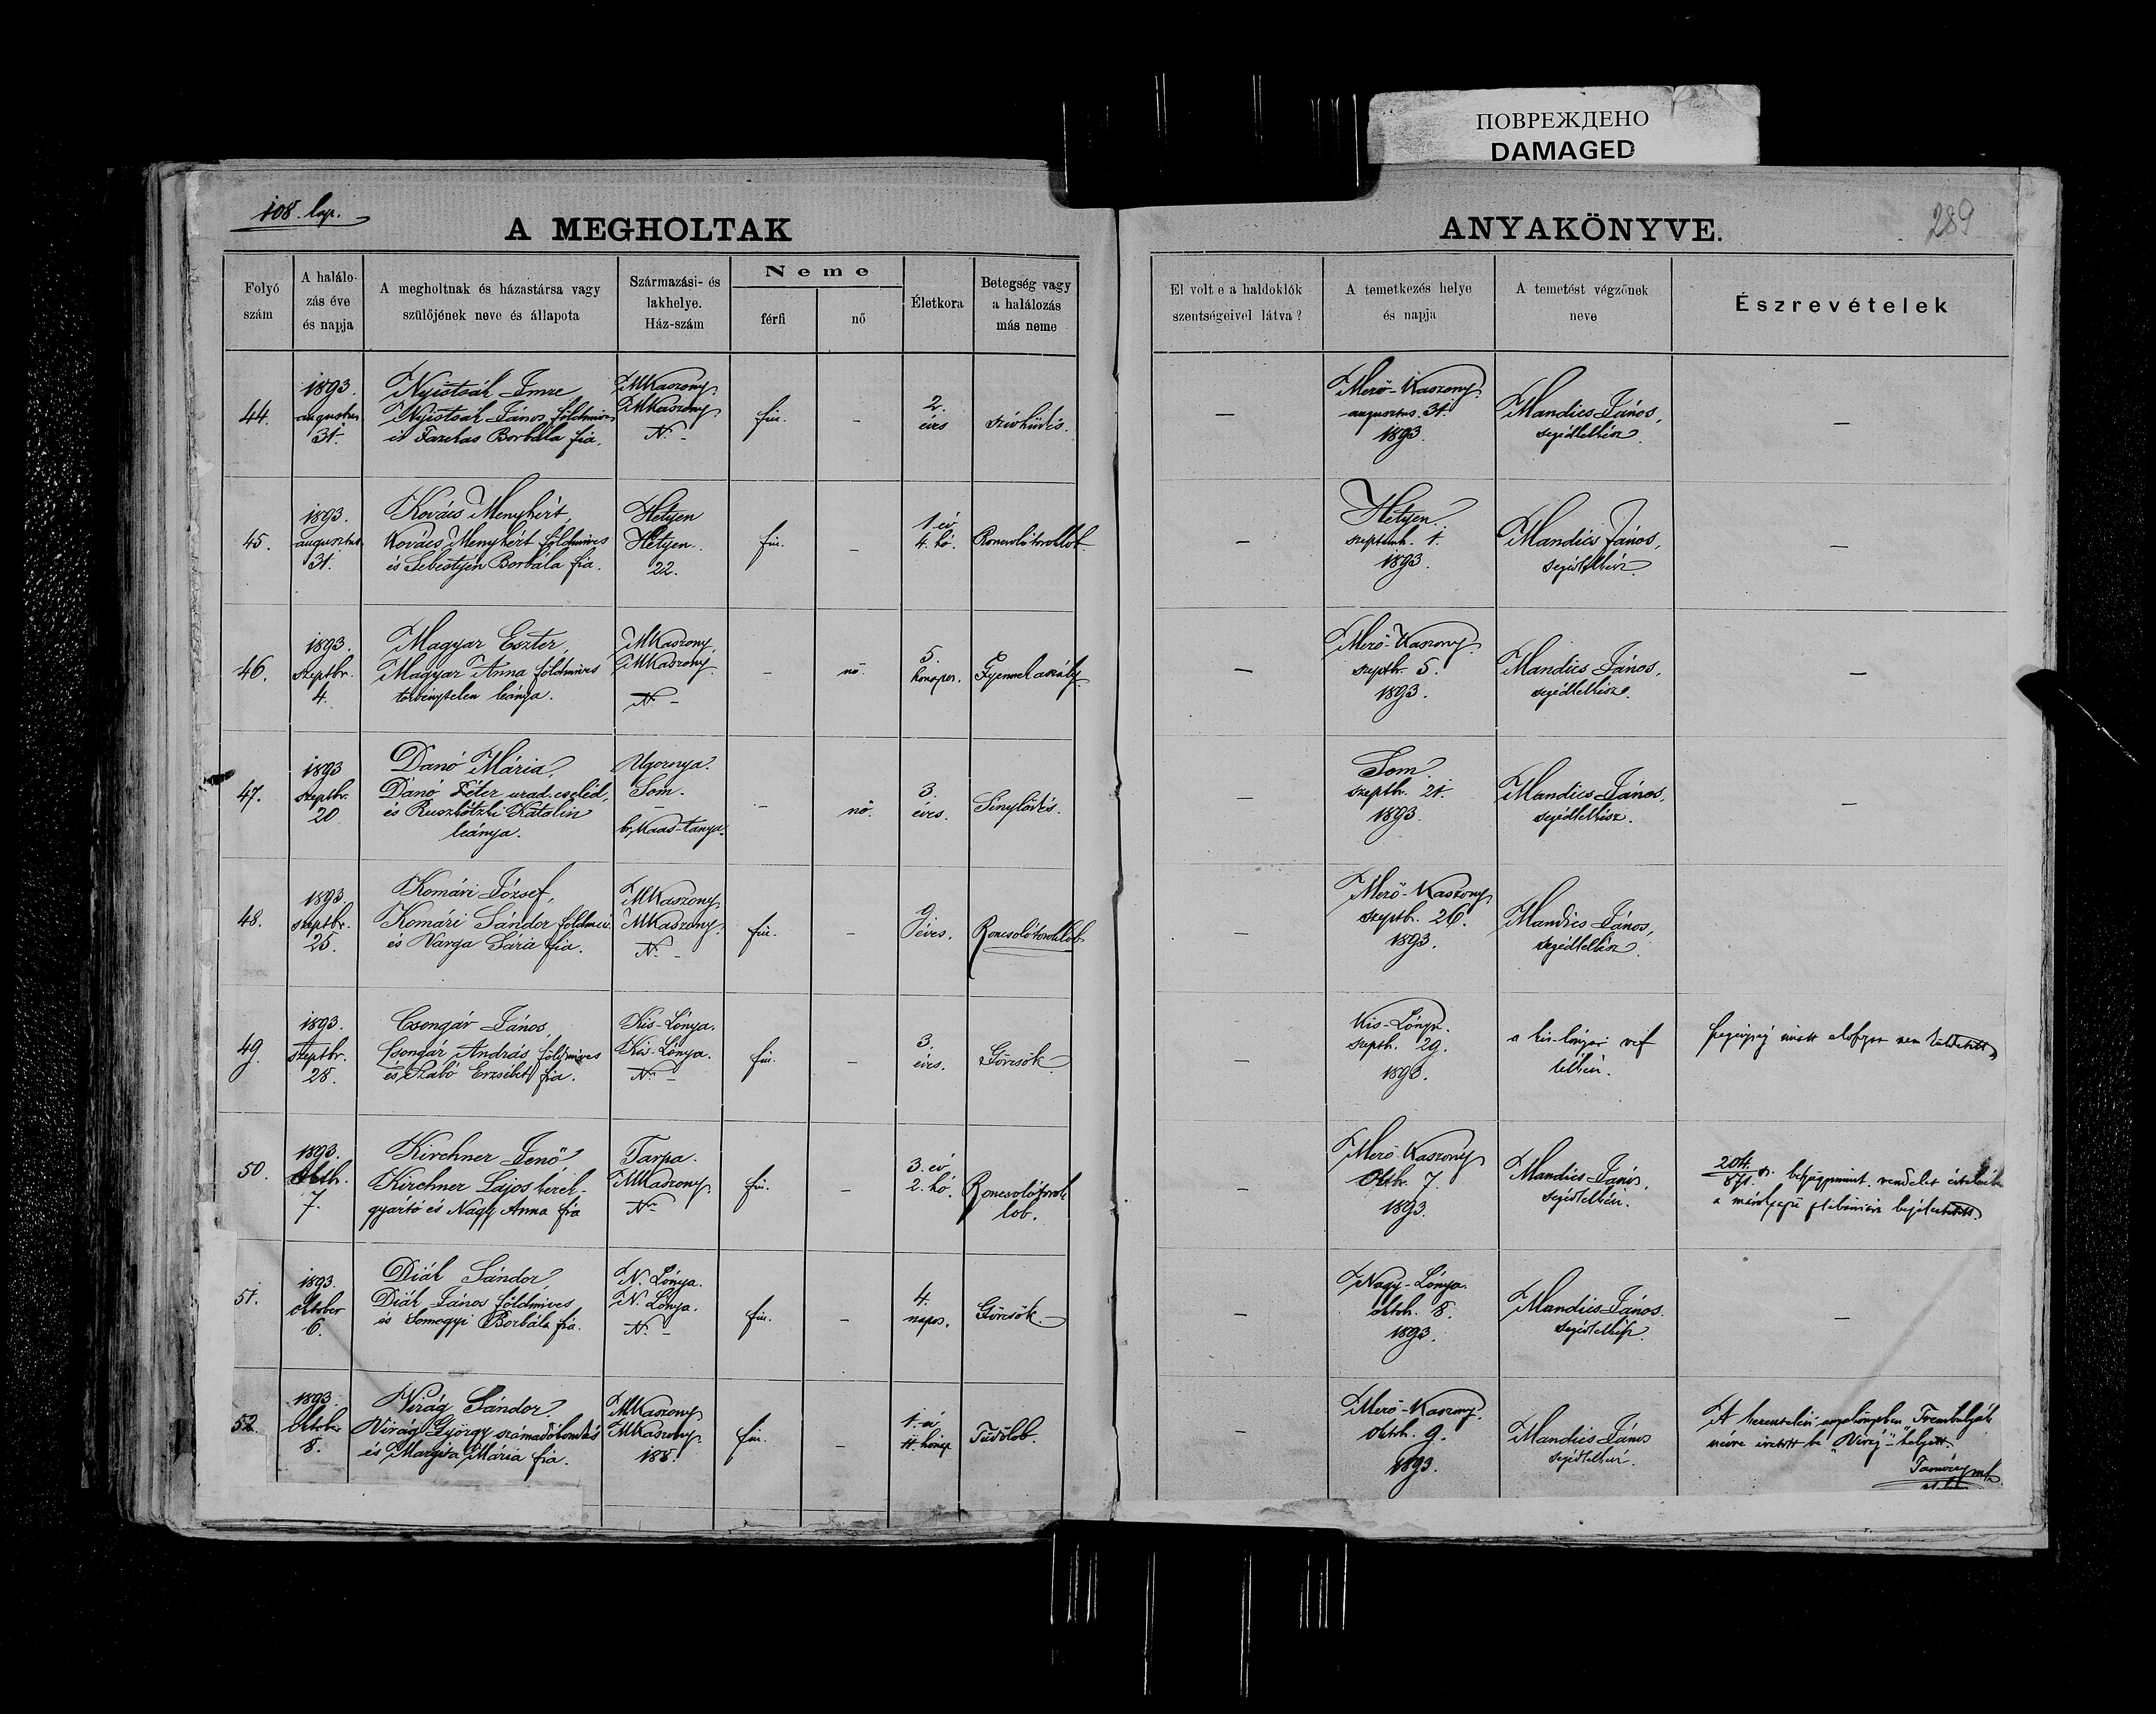 ПОВРЕЖДЕНО
DAMAGED
108. lap.
289
A MEGHOLTAK
ANYAKÖNYVE.
Folyó szám
A halálo-
zás éve
és napja
A megholtnak és házastársa vagy
szülőjének neve és állapota
Származási- és
lakhelye.
Ház-szám
Neme
férfi
nő
Életkora
Betegség vagy
a halálozás
más neme
El volt e a haldoklók
szentségeivel látva?
A temetkezés helye
és napja
A temetést végzőnek
neve
Észrevételek
44.
1893.
augusztus
31.
Imre
János földmives
és Fazekas Borbála fia.
MKaszony
MKaszony
N. -
fiú.
-
2.
éves
szívhüdés.
-
Mező-Kaszony
augusztus 31.
1893.
Mandics János,
segédlelkész.
-
45.
1893.
augusztus
31.
Kovács Menyhért,
Kovács Menyhért földmives
és Sebestyén Borbála fia.
Hetyen
Hetyen.
22.
fiú.
-
1. év
4. hó.
Roncsoló toroklob.
-
Hetyen.
szeptemb. 1.
1893.
Mandics János,
segédlelkész.
-
46.
1893.
szeptbr.
4.
Magyar Eszter,
Magyar Anna földmives
törvénytelen leánya.
MKaszony
MKaszony
N. -
-
nő.
5.
hónapos.
Gyermekaszály.
-
Mező-Kaszony
szeptbr. 5.
1893.
Mandics János,
segédlelkész.
-
47.
1893
szeptbr.
20
Danó Mária,
Danó Péter urad. cseléd,
és Katalin
leánya.
Ugornya.
Som.
-
br. Kaas-tanya.
-
nő.
3.
éves.
Sinylődés.
-
Som.
szeptbr. 21.
1893.
Mandics János,
segédlelkész.
-
48.
1893.
szeptbr.
25.
Komári József,
Komári Sándor földmiv.
és Varga Sára fia.
MKaszony
MKaszony.
N. -
fiú.
-
9
éves.
Roncsoló toroklob.
-
Mező-Kaszony
szeptbr. 26.
1893.
Mandics János,
segédlelkész.
49.
1893.
szeptbr.
28.
Csongár János,
Csongár András földmives
és Szabó Erzsébet fia.
Kis-Lónya.
Kis-Lónya.
N. -
fiú.
-
3.
éves.
Görcsök.
-
Kis-Lónya.
szeptb. 29.
1893.
a kis-lónyai ref
lelkész.
szegénység miatt nem
50.
1893.
Oktbr.
7.
Kirchner Jenő
Kirchner Lajos kerék-
gyártó és Nagy Anna fia
Tarpa.
MKaszony.
N.
fiú.
-
3. év
2. hó.
Roncsoló torok
lob.
-
Mező-Kaszony
Oktbr. 7.
1893.
Mandics János,
segédlelkész.
rendelet értelmében
a
51.
1893.
október
6.
Diák Sándor,
Diák János földmives
és Somogyi Borbála fia.
N. Lónya.
N. Lónya.
N. -
fiú.
-
4.
napos.
Görcsök.
-
Nagy-Lónya.
oktob. 8.
1893.
Mandics János.
segédlelkész.
-
52.
1893.
Október
8.
Virág Sándor
Virág György
és Mária fia.
MKaszony
MKaszony.
188.
fiú.
-
1. év
11 hónap
Tüdőlob.
-
Mező-Kaszony.
oktob. 9.
1893.
Mandics János
segédlelkész.
A keresztelési anyakönyvben
névre iratott be "Virág" helyett.